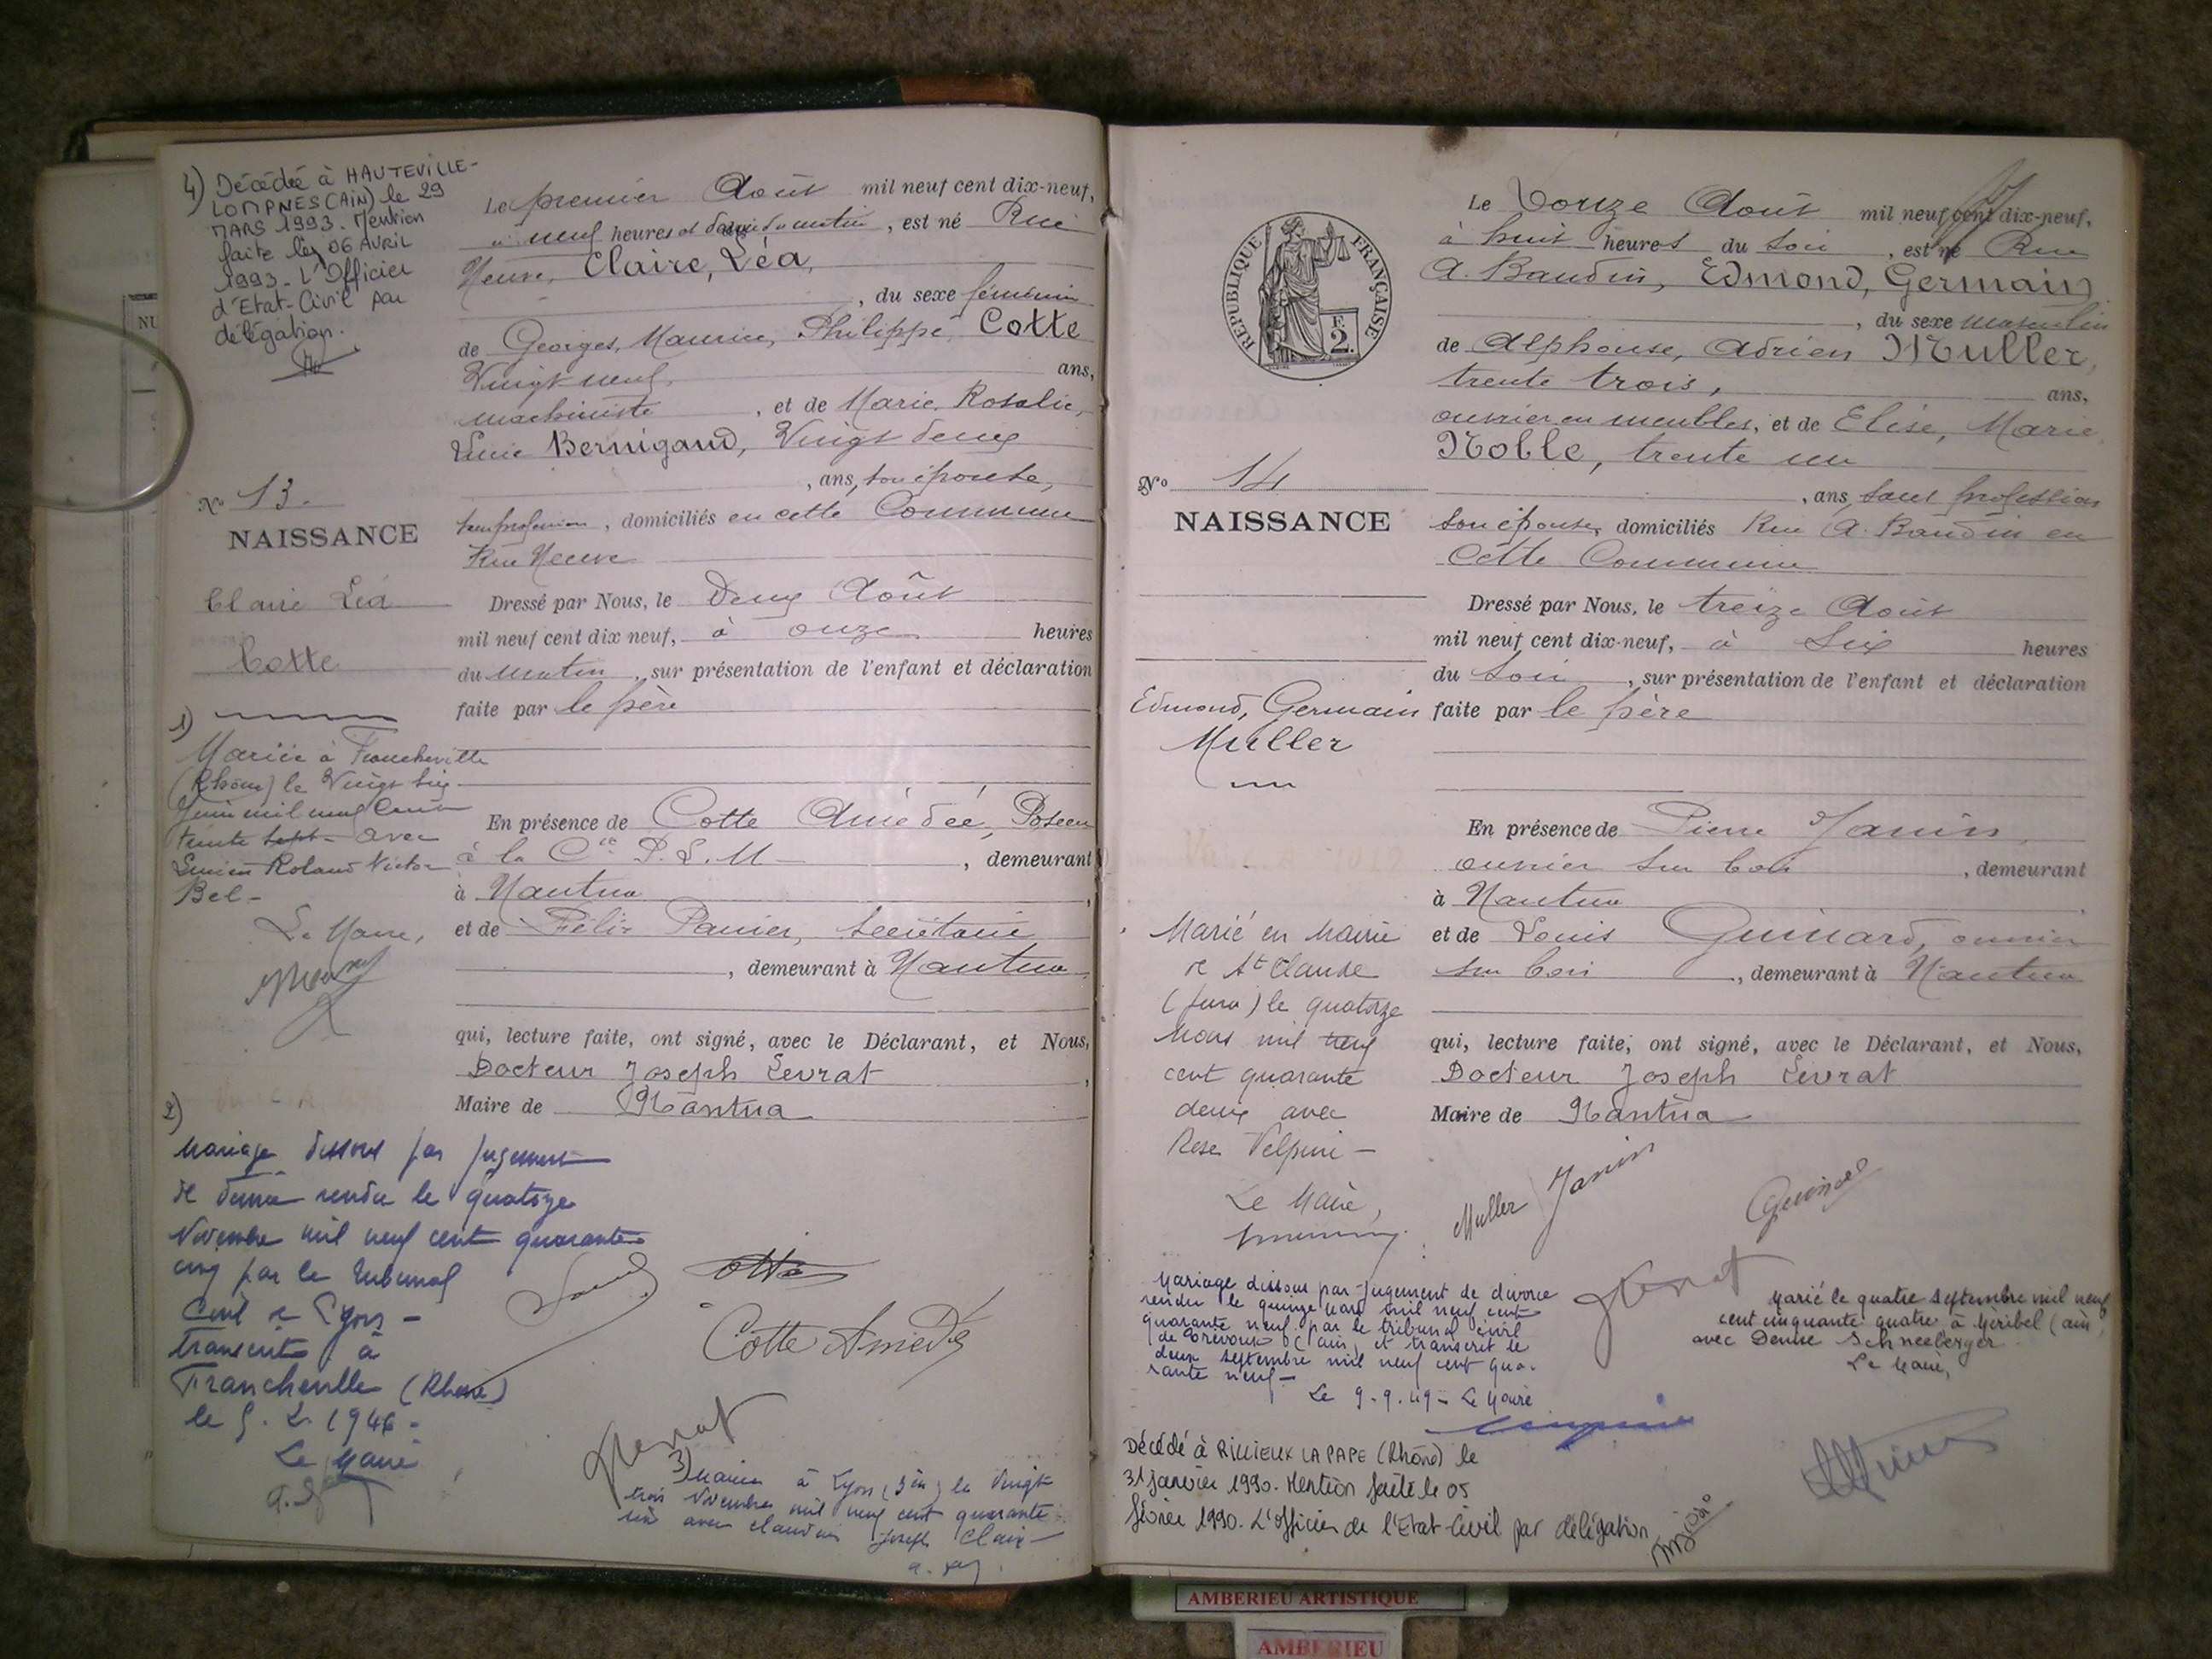 4) Décédée à HAUTEVILLE-
LOMPNES (AIN) le 29
MARS 1993. Mention
faite le 06 AVRIL
1993. L'Officier
d'Etat-Civil par
délégation.
Nº 13.
NAISSANCE
Claire Léa
Cotte
1)
Mariée à Francheville
(Rhône) le Vingt six
Juin mil neuf cent
trente sept avec
Lucien Roland Victor
Bel -
Le Maire,
2)
Mariage dissous par jugement
de divorce rendu le quatorze
Novembre mil neuf cent quarante
cinq par le Tribunal
Civil de Lyon -
transcrit à
Francheville (Rhône)
le 5. 2. 1946 -
Le Maire
Le premier Août mil neuf cent dix-neuf,
à neuf heures et demie du matin, est né Rue
Neuve, Claire, Léa,
, du sexe féminin
de Georges, Maurice, Philippe, Cotte
Vingt neuf, ans,
machiniste, et de Marie, Rosalie,
Bernigaud, Vingt deux
, ans, son épouse,
sans profession, domiciliés en cette Commune
Rue Neuve
Dressé par Nous, le Deux Août
mil neuf cent dix neuf, à onze heures
du matin, sur présentation de l'enfant et déclaration
faite par le père
En présence de Cotte Amédée, Poseur
à la Cie P. L. M , demeurant
à Nantua
et de Félix Panier, Secrétaire
, demeurant à Nantua
qui, lecture faite, ont signé, avec le Déclarant, et Nous,
Docteur Joseph Levrat,
Maire de Nantua
Cotte
Cotte Amédée
Levrat
3) Mariée à Lyon (3è) le Vingt
trois Novembre mil neuf cent quarante
six avec Claudius Joseph Clair -
RÉPUBLIQUE FRANÇAISE
F.
2.
Nº 14
NAISSANCE
Edmond, Germain
Muller
Marié en Mairie
de St Claude
(Jura) le quatorze
Mars mil neuf
cent quarante
deux avec
Rose Velpini -
Le Maire,
Le Douze Août mil neuf cent dix-neuf,
à huit heures du soir, est né Rue
A. Baudin, Edmond, Germain
, du sexe masculin
de Alphonse, Adrien Muller,
trente trois, ans,
ouvrier en meubles, et de Elise, Marie
Noble, trente un
, ans, sans profession
son épouse, domiciliés Rue A. Baudin en
cette Commune
Dressé par Nous, le treize Août
mil neuf cent dix-neuf, à six heures
du soir, sur présentation de l'enfant et déclaration
faite par le père
En présence de Pierre Janin,
ouvrier sur bois, demeurant
à Nantua
et de Louis Guinard, ouvrier
sur bois, demeurant à Nantua
qui, lecture faite, ont signé, avec le Déclarant, et Nous,
Docteur Joseph Levrat
Maire de Nantua
Muller Janin Guinard
Levrat
Mariage dissous par jugement de divorce
rendu le quinze Mars mil neuf cent
quarante neuf par le tribunal civil
de Trévoux (Ain) et transcrit le
deux septembre mil neuf cent qua-
rante neuf -
Le 9.9.49 - Le Maire
Marié le quatre septembre mil neuf
cent cinquante quatre à Miribel (ain)
avec Denise Schneeberger
Le Maire,
Décédé à RILLIEUX LA PAPE (Rhône) le
31 janvier 1990. Mention faite le 05
février 1990. L'officier de l'Etat-Civil par délégation
AMBERIEU ARTISTIQUE
AMBERIEU